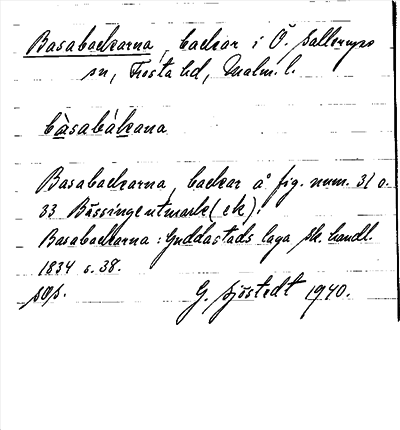 Basabackarna, backar i Ö. Sallerups
sn, Frosta hd, Malm. l.
bàsabákana
Basabackarna, backar å fig. num. 31 o.
33 Bössinge utmark (ek).
Basabackarna: Guddastads laga sk. handl.
1834 s. 38.
G. Sjöstedt 1940.